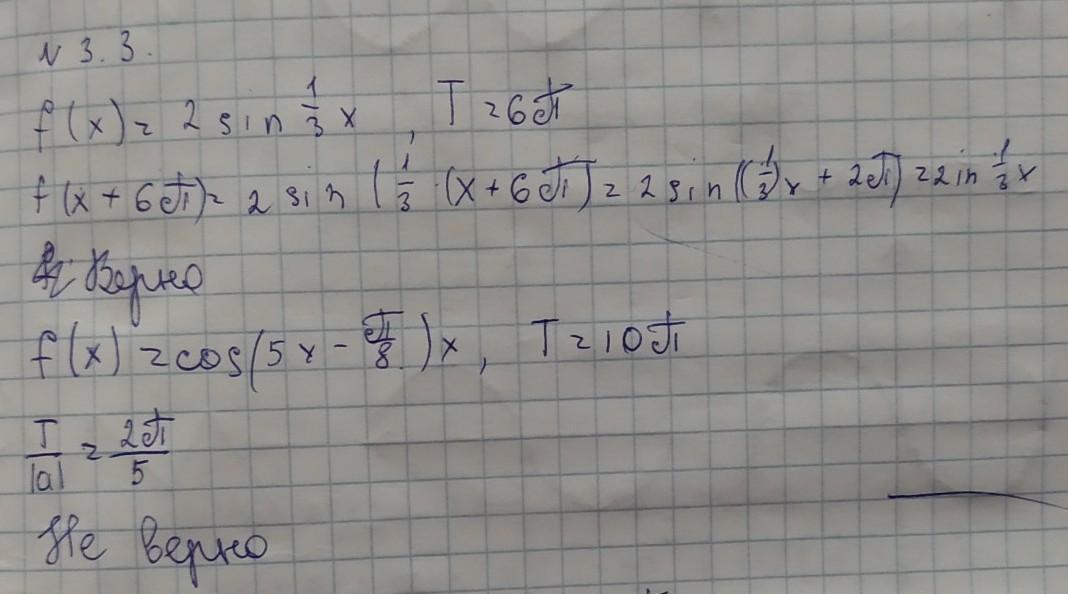 N 3. 3.
f(x) = 2 sin 1/3 x , T = 6π
f(x + 6π) = 2 sin (1/3 · (x + 6π) = 2 sin ((1/3)x + 2π) = 2 in 1/3 x
Верно
f(x) = cos(5x - π/8)x, T = 10π
T/|a| = 2π/5
Не верно